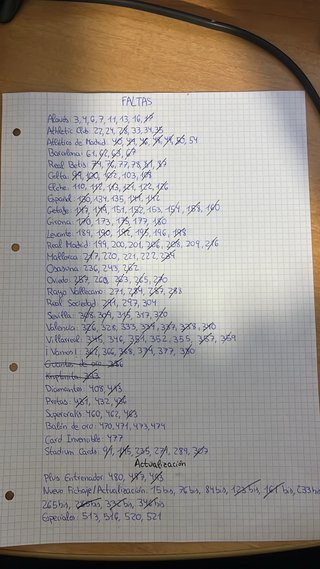 FALTAS
Alavés 3, 4, 6, 7, 11, 13, 16, 17
Athletic Club 22, 24, 28, 33, 34, 35
Atlético de Madrid 40, 50, 54
Barcelona 61, 62, 63, 67
Real Betis 76, 77, 78, 81, 87
Celta 99, 100, 102, 103, 108
Elche 110, 112, 113, 121, 122, 126
Espanyol 130, 134, 135, 141, 142
Getafe 147, 149, 151, 152, 153, 154, 158, 160
Girona 170, 173, 175, 177, 180
Levante 189, 190, 192, 195, 196, 198
Real Madrid 199, 200, 201, 206, 208, 209, 216
Mallorca 217, 220, 221, 222, 234
Osasuna 236, 243, 252
Oviedo 257, 260, 263, 265, 270
Rayo Vallecano 271, 281, 287, 283
Real Sociedad 291, 297, 304
Sevilla 308, 309, 315, 317, 320
Valencia 326, 328, 333, 334, 337, 338, 340
Villarreal 345, 346, 351, 352, 355, 357, 359
¡Vamos! 361, 366, 368, 374, 377, 380
Guantes de oro 386
Kryptonita 393
Diamantes 408, 413
Protas 431, 432, 436
Supercracks 460, 462, 463
Balón de oro 470, 471, 473, 474
Card Invencible 477
Stadium Cards 91, 145, 235, 271, 289, 307
Actualización
Plus Entrenador 480, 487, 493
Nuevo Fichaje/Actualización: 75 bis, 76 bis, 84 bis, 123 bis, 161 bis, 233 bis
265 bis, 285 bis, 332 bis, 346 bis
Especiales 513, 516, 520, 521